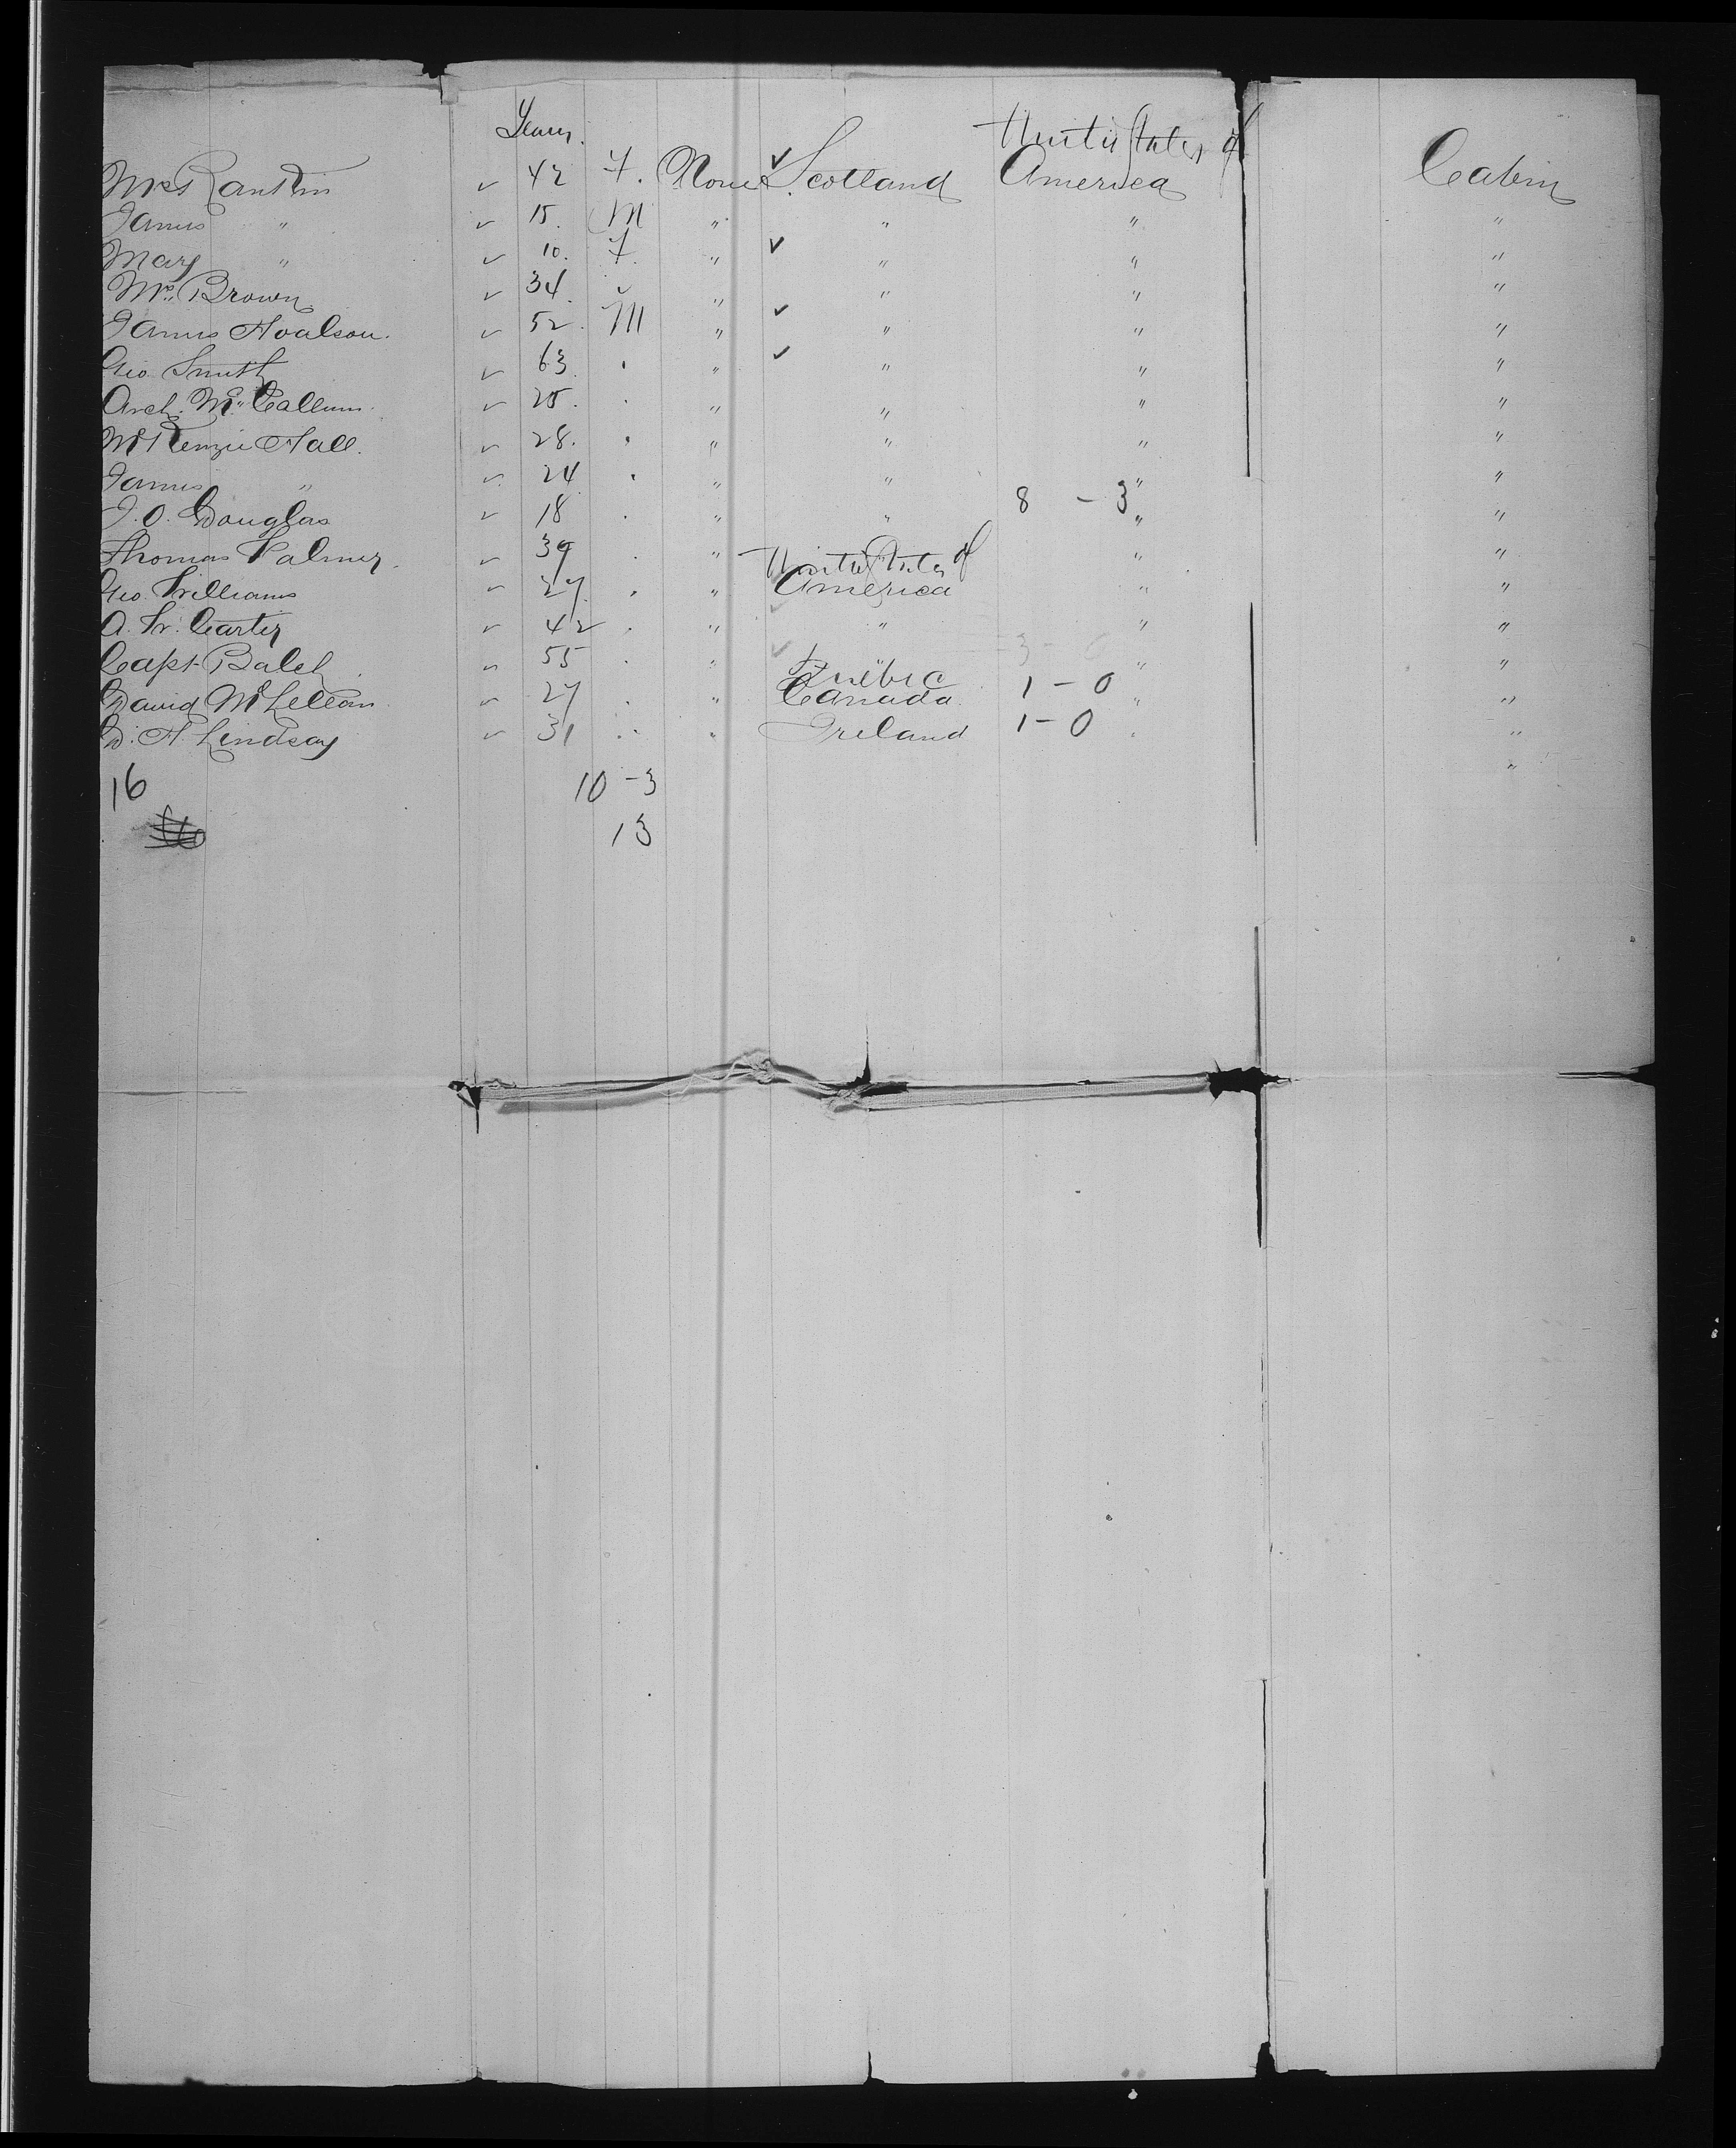 Years. United States of
Mrs Rankin ✓ 42 F. None ✓ Scotland America Cabin
James " ✓ 15. M " " " "
Mary " ✓ 10. F. " ✓ " " "
Mrs. Brown ✓ 34. " " " " "
James Hoalson. ✓ 52. M " ✓ " " "
Geo. Smith ✓ 63. " " ✓ " " "
Arch. Mc. Callum. ✓ 25. " " " " "
McKenzie Hall. ✓ 28. " " " " "
James " ✓ 24 " " " " "
J. O. Douglas ✓ 18 " " " 8 - 3 " "
Thomas Palmer. ✓ 39 " " United States of " "
Geo. Williams ✓ 27. " " America " "
A. W. Carter ✓ 42 " " " " "
Capt Balch ✓ 55 " " " 3 - 0 " "
Quebec
David McLellan ✓ 27 " " Canada. 1 - 0 " "
D. H. Lindsay ✓ 31 " " Ireland 1 - 0 " "
"
16 10 - 3
13